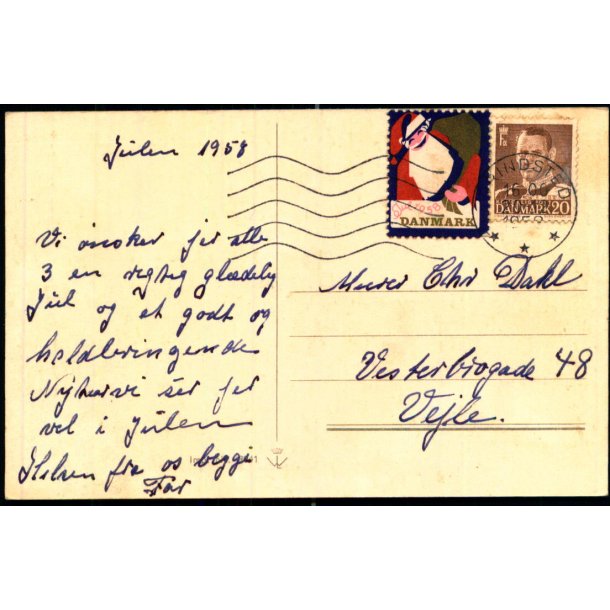 Julen 1958
Vi ønsker jer alle
3 en rigtig glædelig
Jul og et godt og
heldbringende
Nytår vi ser jer
vel i Julen
Hilsen fra os begge
Far
JUL 1958
DANMARK
DANMARK 20
1958
Murer Chr Dahl
Vesterbrogade 48
Vejle.